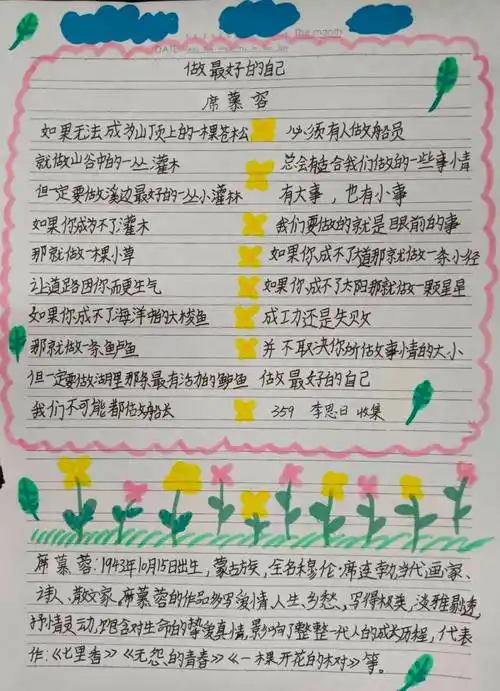 The month
DATE
做最好的自己
席慕蓉
如果无法成为山顶上的一棵苍松
就做山谷中的一丛灌木
但一定要做溪边最好的一丛小灌林
如果你成为不了灌木
那就做一棵小草
让道路因你而更生气
如果你成不了海洋中的大梭鱼
那就做一条鲈鱼
但一定要做湖里那条最有活力的鲈鱼
我们不可能都做船长
必须有人做船员
总会有适合我们做的一些事情
有大事,也有小事
我们要做的就是眼前的事
如果你成不了大道那就做一条小径
如果你成不了太阳那就做一颗星星
成功还是失败
并不取决你所做事情的大小
做最好的自己
359 李恩日 收集
席慕蓉:1943年10月15日出生,蒙古族,全名穆伦·席连勃,当代画家、
诗人、散文家。席慕蓉的作品多写爱情、人生、乡愁,写得极美,淡雅剔透,
抒情灵动,饱含对生命的挚爱真情,影响了整整一代人的成长历程,代表
作:《七里香》《无怨的青春》《一棵开花的树》等。